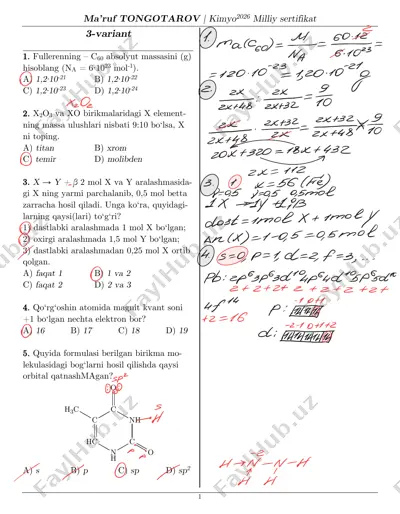 Ma'ruf TONGOTAROV | Kimyo²⁰²⁶ Milliy sertifikat
3-variant
1. Fullerenning – C₆₀ absolyut massasini (g)
hisoblang (N_A = 6·10²³ mol⁻¹).
A) 1,2·10⁻²¹ B) 1,2·10⁻²²
C) 1,2·10⁻²³ D) 1,2·10⁻²⁴
X₂O₂
2. X₂O₃ va XO birikmalaridagi X element-
ning massa ulushlari nisbati 9:10 bo'lsa, X
ni toping.
A) titan B) xrom
C) temir D) molibden
3. X → Y + β 2 mol X va Y aralashmasida-
gi X ning yarmi parchalanib, 0,5 mol betta
zarracha hosil qiladi. Unga ko'ra, quyidagi-
larning qaysi(lari) to'g'ri?
1) dastlabki aralashmada 1 mol X bo'lgan;
2) oxirgi aralashmada 1,5 mol Y bo'lgan;
3) dastlabki aralashmadan 0,25 mol X ortib
qolgan.
A) faqat 1 B) 1 va 2
C) faqat 2 D) 2 va 3
4. Qo'rg'oshin atomida magnit kvant soni
+1 bo'lgan nechta elektron bor?
A) 16 B) 17 C) 18 D) 19
5. Quyida formulasi berilgan birikma mo-
lekulasidagi bog'larni hosil qilishda qaysi
orbital qatnashMAgan?
sp²
O
H₃C
C
C
NH
S
H
HC
C
N
H
O
A) s B) p C) sp D) sp²
1. ma(C₆₀) = M/N_A = 60·12/6·10²³ =
= 120·10⁻²³ = 1,20·10⁻²¹ g
2. 2x/2x+48 : 2x/2x+32 = 9/10
2x/2x+48 · 2x+32/2x = 2x+32/2x+48 = 9/10
20x+320 = 18x+432
2x = 112
x = 56 (Fe)
3. 1
0,5 0,5mol
1X → 1y + 1β
dast = 1mol X + 1mol Y
1-0,5 = 0,5mol
4. s=0, p=1, d=2, f=3, ...
Pb: 2p⁶3p⁶3d¹⁰4p⁶4d¹⁰5p⁶5d¹⁰
2 + 2 + 2 + 2 + 2 + 2 + 2 +
4f¹⁴
+2 = 16
-1 0 +1
p:
-2 -1 0 +1 +2
d:
H → N – N – H
H H
FaylHub.uz
1